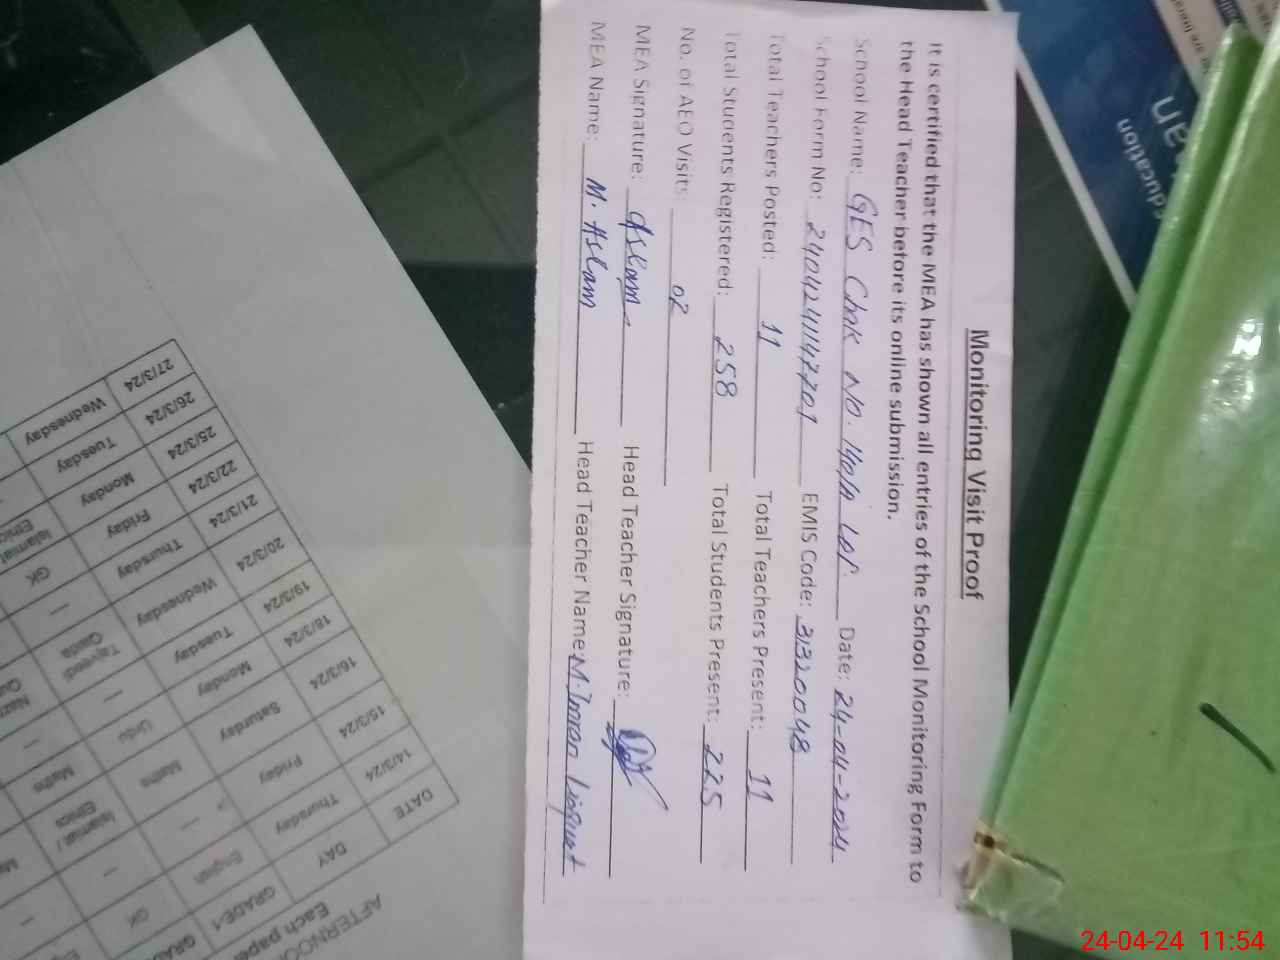 Monitoring Visit Proof
It is certified that the MEA has shown all entries of the School Monitoring Form to
the Head Teacher before its online submission.
School Name: GES Chak No. Date: 24-04-2024
School Form No: EMIS Code: 31320048
Total Teachers Posted: 11 Total Teachers Present: 11
Total Students Registered: 258 Total Students Present: 225
No. of AEO Visits: 02
MEA Signature: Aslam Head Teacher Signature:
MEA Name: M. Aslam Head Teacher Name: M. Imran Liaquat
AFTERNOO
Each pape
DATE DAY GRADE-1 GRA
14/3/24 Thursday English GK
15/3/24 Friday — —
16/3/24 Saturday Maths Islamiat / Ethics
18/3/24 Monday Urdu Maths
19/3/24 Tuesday — —
20/3/24 Wednesday Tajweedi Qaida Naz
21/3/24 Thursday —
22/3/24 Friday GK Islamiat Ethic
25/3/24 Monday
26/3/24 Tuesday
27/3/24 Wednesday
ducation
24-04-24 11:54